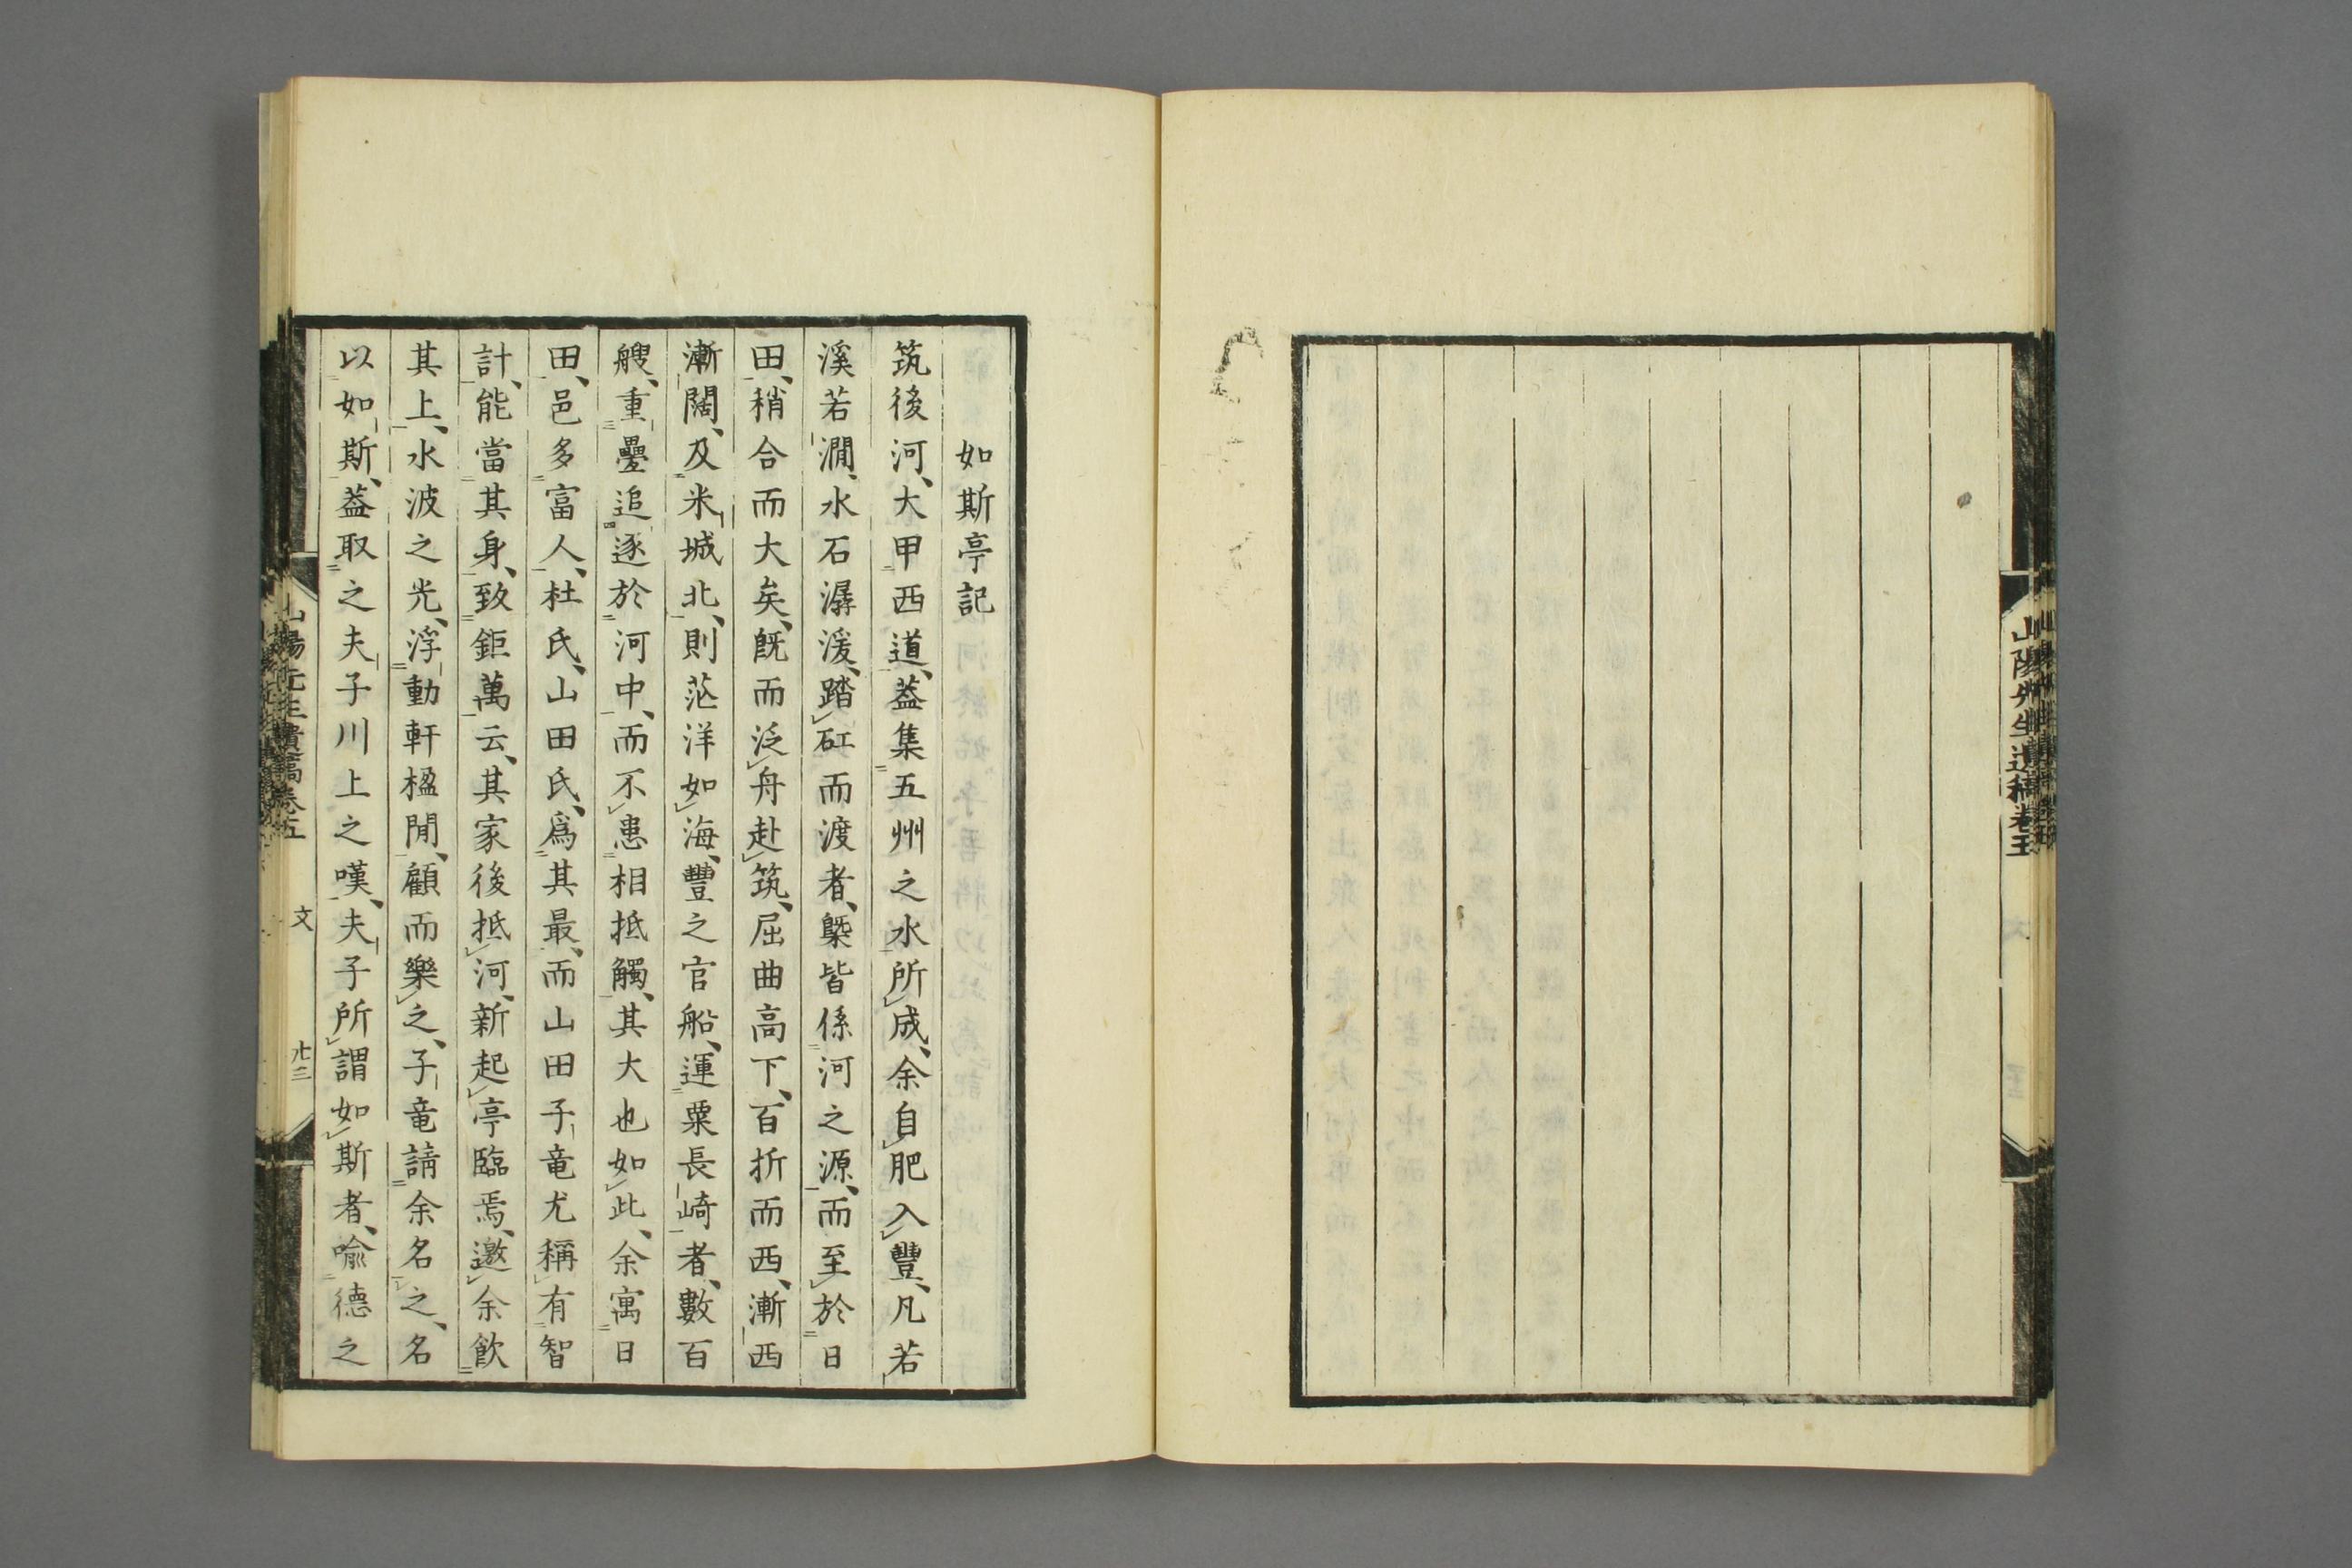 山陽先生遺稿卷五
如斯亭記
筑後河、大甲西道、蓋集五州之水所成、余自肥入豐、凡若
溪若澗、水石潺湲、踏矼而渡者、槩皆係河之源、而至於日
田、稍合而大矣、既而泛舟赴筑、屈曲高下、百折而西、漸西
漸闊、及米城北、則茫洋如海、豐之官船、運粟長崎者、數百
艘、重疊追逐於河中、而不患相抵觸、其大也如此、余寓日
田、邑多富人、杜氏、山田氏、爲其最、而山田子竜尤稱有智
計、能當其身、致鉅萬云、其家後抵河、新起亭臨焉、邀余飲
其上、水波之光、浮動軒楹間、顧而樂之、子竜請余名之、名
以如斯、蓋取之夫子川上之嘆、夫子所謂如斯者、喩德之
山陽先生遺稿卷五
文
廿三